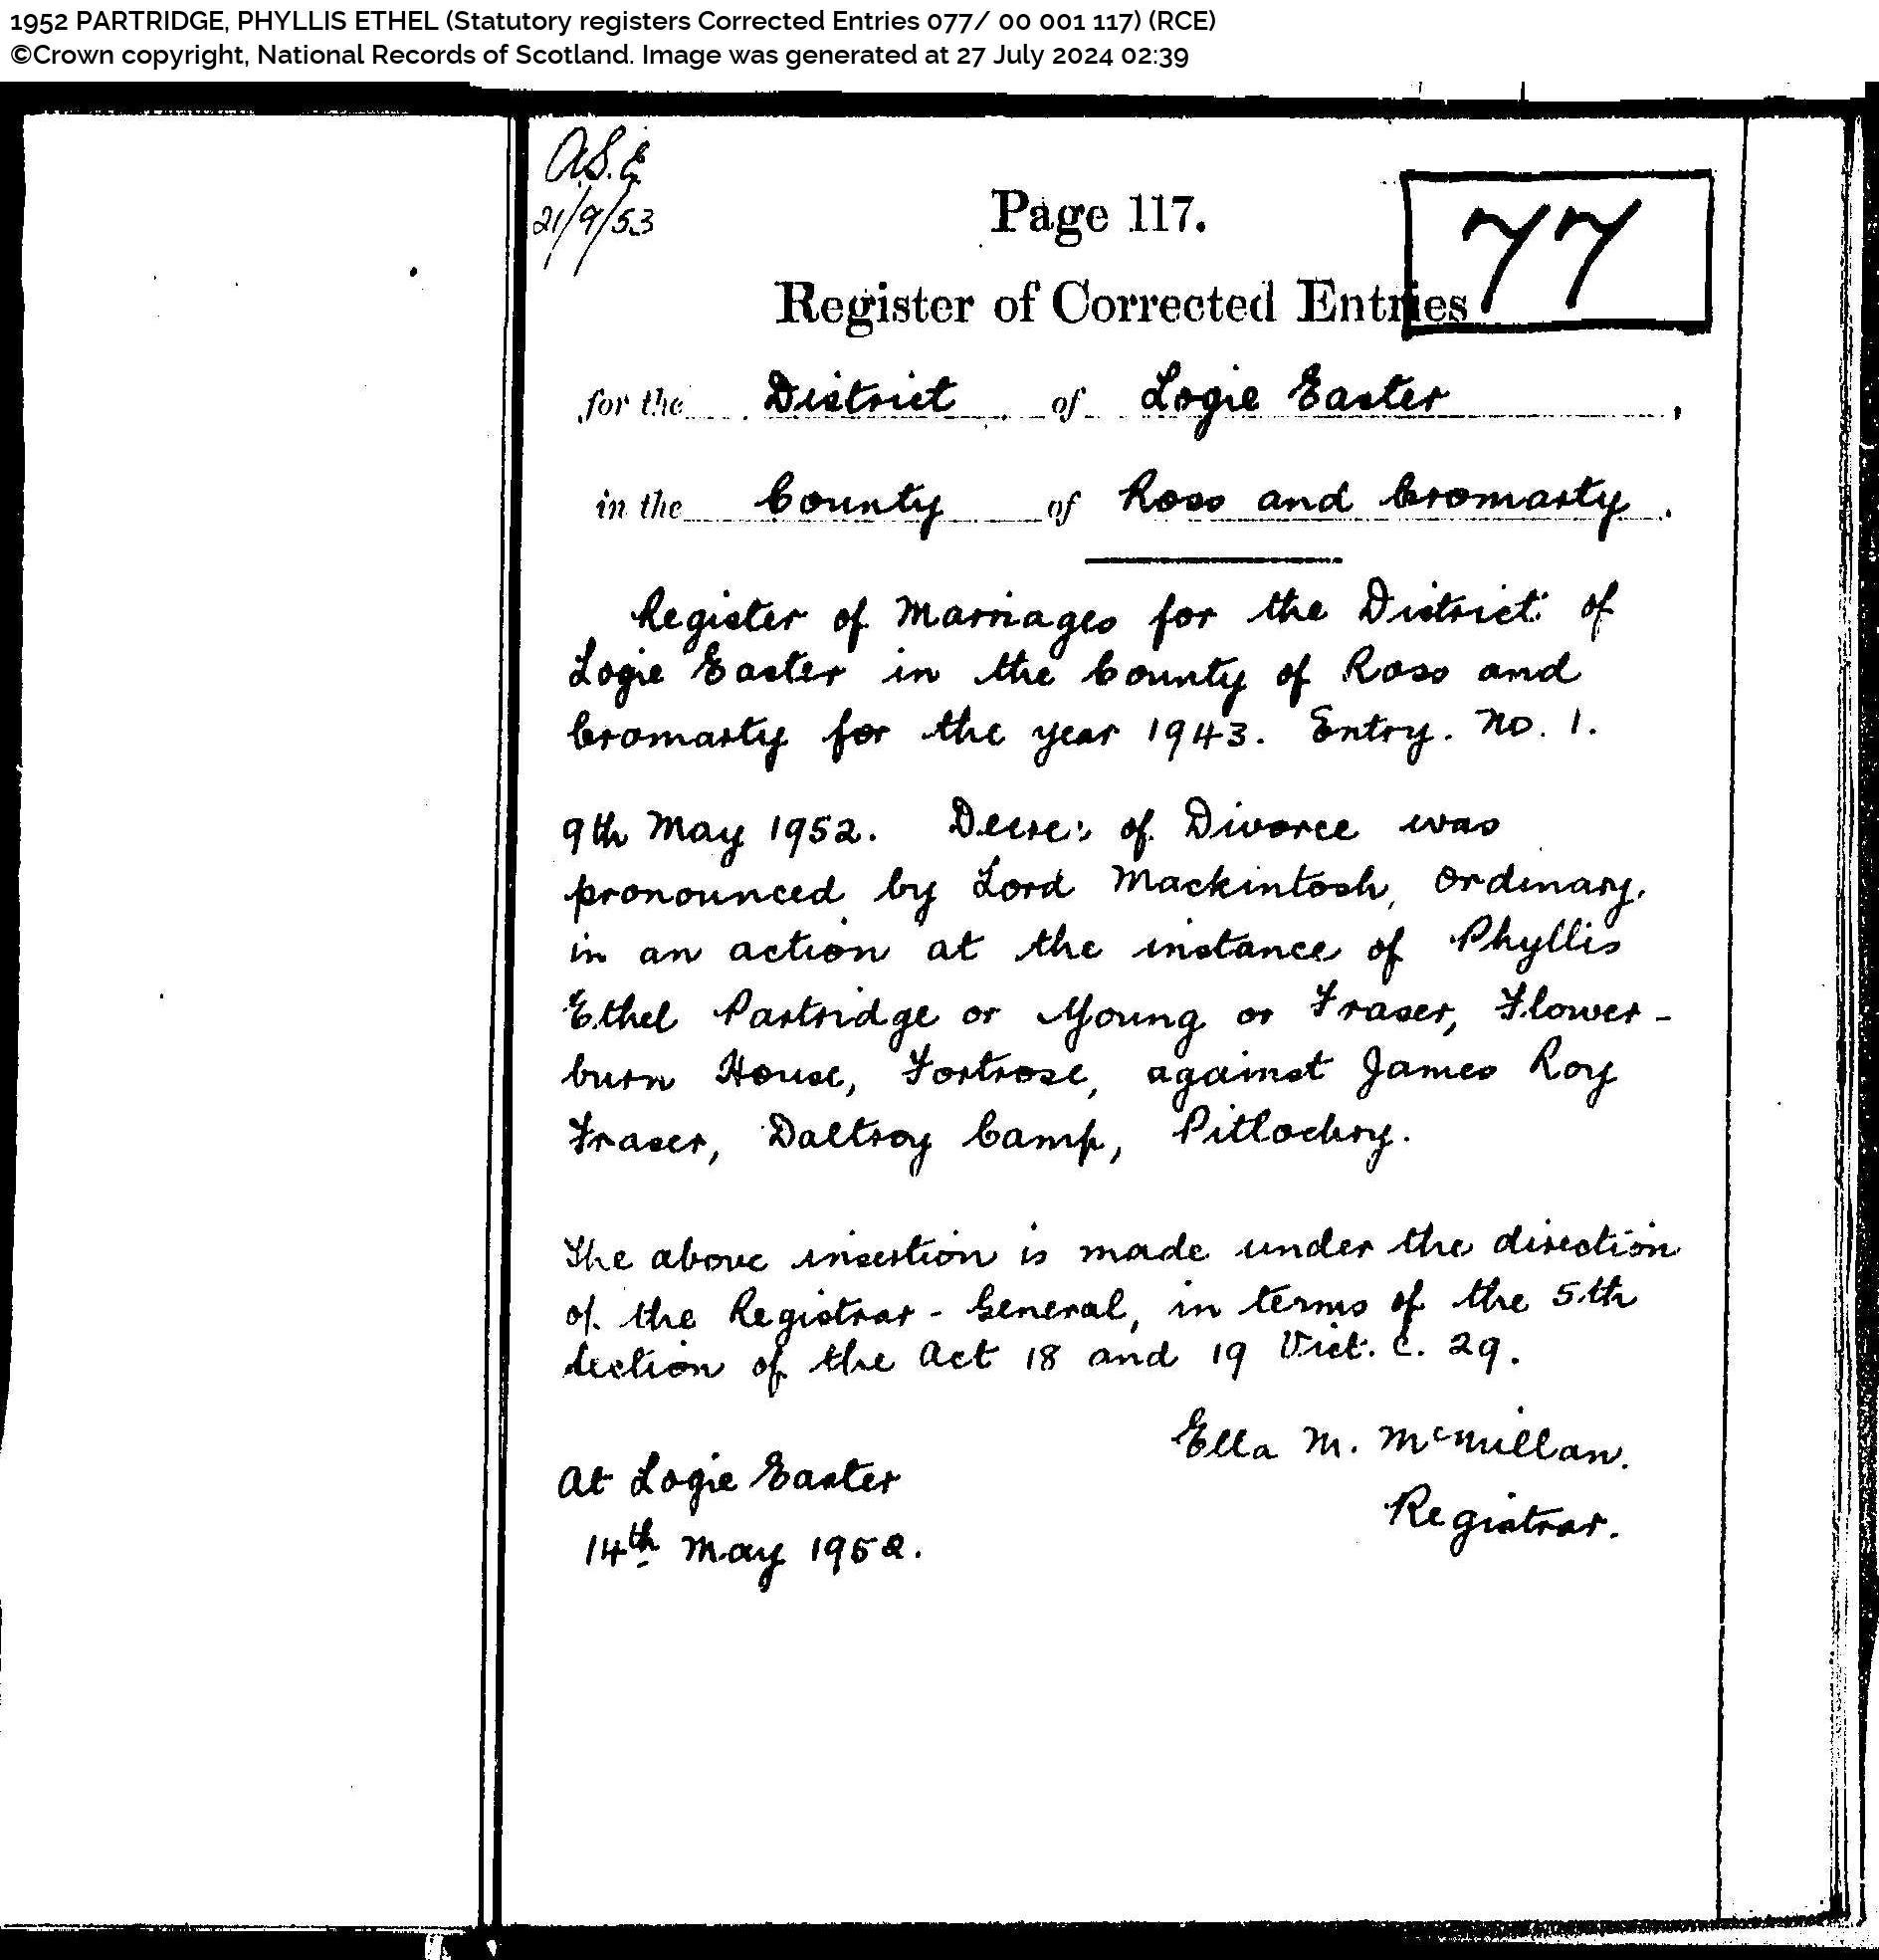 1952 PARTRIDGE, PHYLLIS ETHEL (Statutory registers Corrected Entries 077/ 00 001 117) (RCE)
©Crown copyright, National Records of Scotland. Image was generated at 27 July 2024 02:39
A.S.E
21/9/53
Page 117.
77
Register of Corrected Entries
for the District of Logie Easter,
in the County of Ross and Cromarty.
Register of Marriages for the District of
Logie Easter in the County of Ross and
Cromarty for the year 1943. Entry. No. 1.
9th May 1952. Decree of Divorce was
pronounced by Lord Mackintosh, Ordinary.
in an action at the instance of Phyllis
Ethel Partridge or Young or Fraser, Flower-
burn House, Fortrose, against James Roy
Fraser, Daltroy Camp, Pitlochry.
The above insertion is made under the direction
of the Registrar-General, in terms of the 5th
section of the Act 18 and 19 Vict. c. 29.
Ella M. McMillan.
At Logie Easter
Registrar.
14th May 1952.